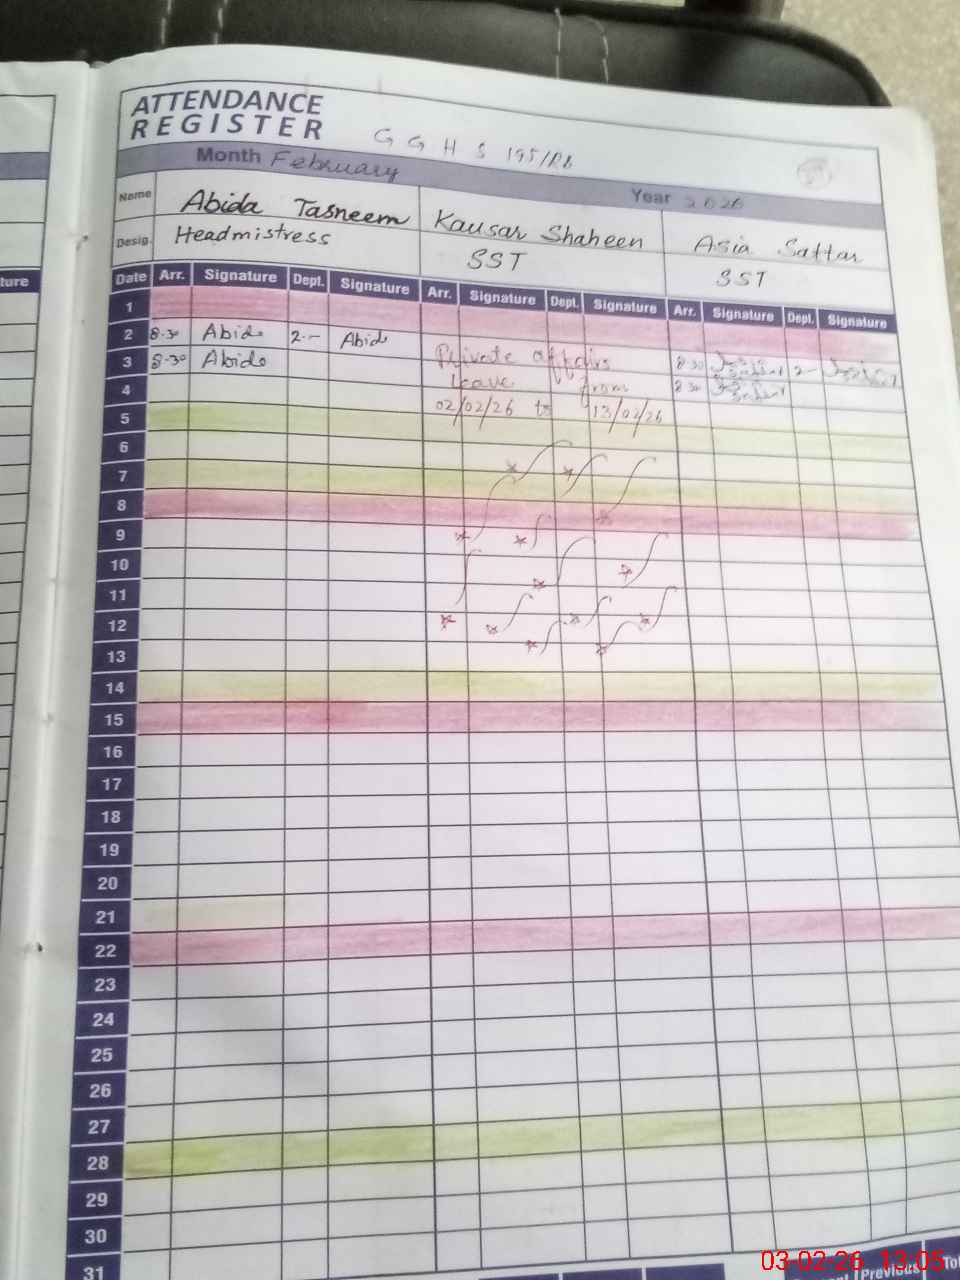 ture
ATTENDANCE
REGISTER
G G H S 195/RB
Month February
Year 2026
Name Abida Tasneem Kausar Shaheen Asia Sattar
Desig. Headmistress SST SST
ture
Date Arr. Signature Dept. Signature Arr. Signature Dept. Signature Arr. Signature Dept. Signature
1
2 8-30 Abida 2-- Abida
3 8-30 Abida Private affairs 8-30 2-
4 leave from 8-30
5 02/02/26 to 13/02/26
6
7
8
9
10
11
12
13
14
15
16
17
18
19
20
21
22
23
24
25
26
27
28
29
30
31
Previous
03-02-26 13:05